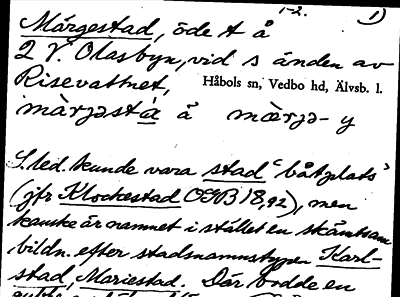 1-2. 1)
Märgestad, öde t å
2 V. Olasbyn, vid s änden av
Risevattnet,
Håbols sn, Vedbo hd, Älvsb. l.
màrjəstá å mæ̀rjə- y
S. led. kunde vara stad 'båtplats'
(jfr Klockestad OGB 18,92), men
kanske är namnet i stället en skämtsam
bildn. efter stadsnamnstypen Karl-
stad, Mariestad. Där bodde en